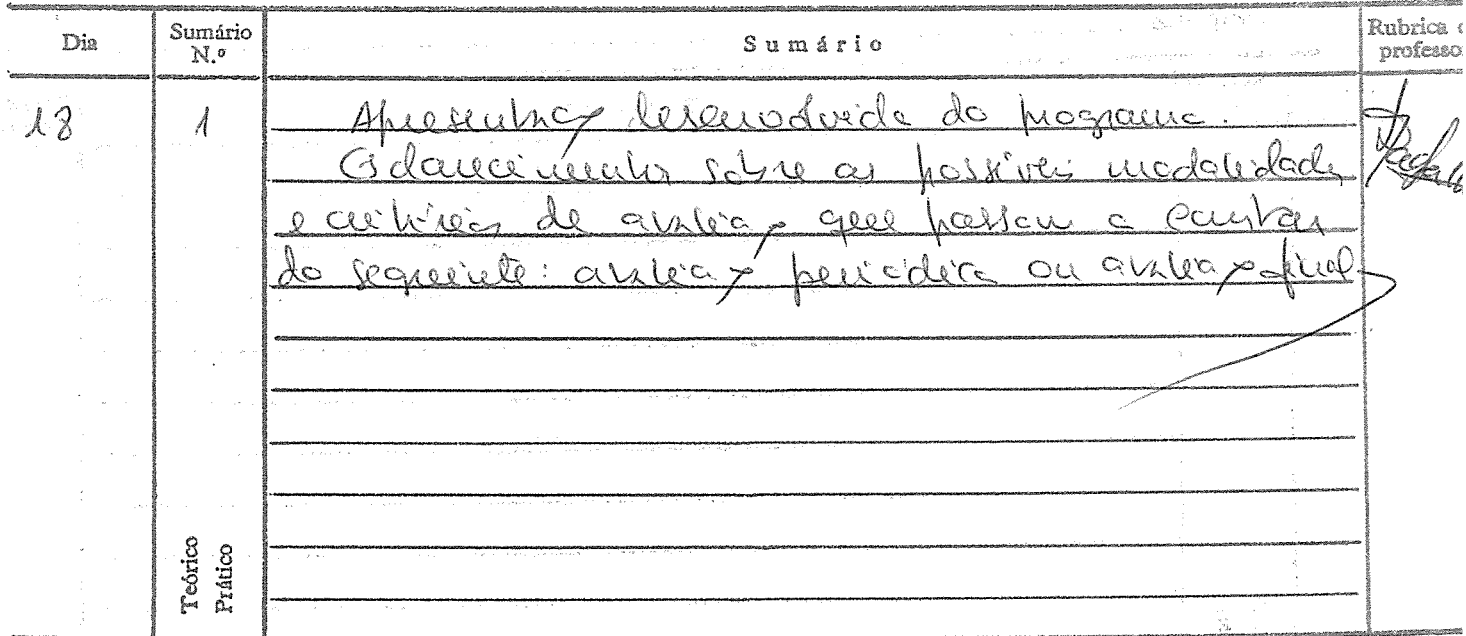 Dia
Sumário N.º
Sumário
Rubrica d
professor
18
1
Apresentação desenvolvida do programa.
Esclarecimento sobre as possíveis modalidades
e critérios de avaliação que passam a constar
do seguinte: avaliação periódica ou avaliação final
Teórico
Prático